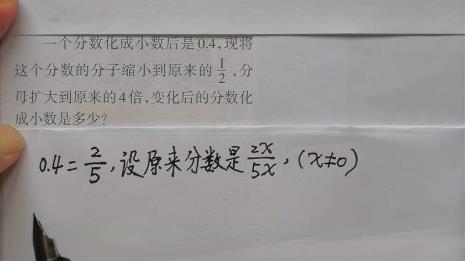 一个分数化成小数后是0.4,现将
这个分数的分子缩小到原来的1/2,分
母扩大到原来的4倍,变化后的分数化
成小数是多少?
0.4=2/5,设原来分数是2x/5x,(x≠0)